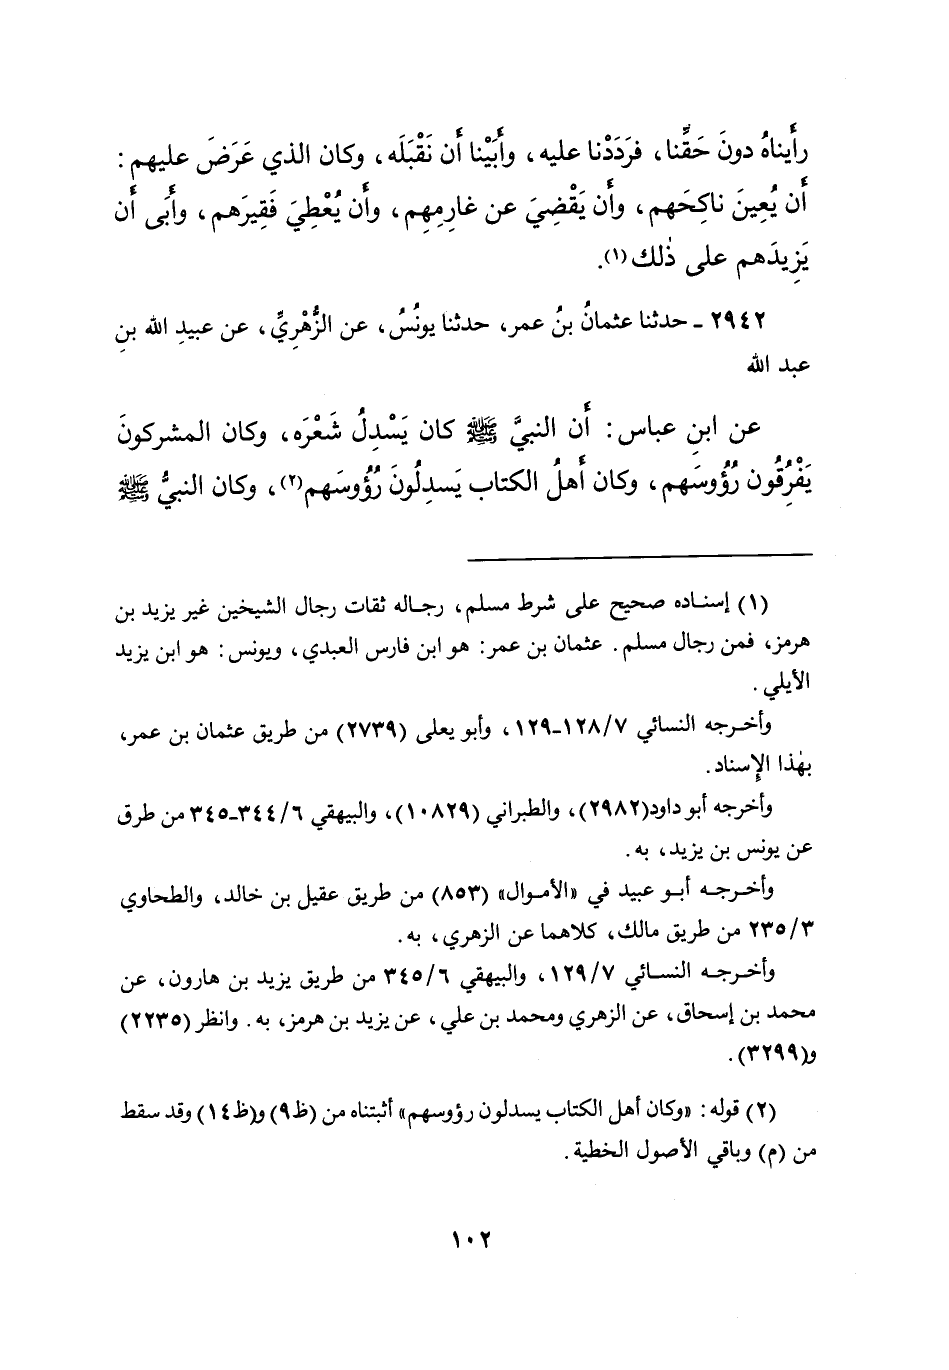 رأَيناهُ دونَ حَقِّنا، فرَدَدْنا عليه، وأَبَيْنا أَن نَقْبَلَه، وكان الذي عَرَضَ عليهم:
أَن يُعِينَ ناكِحَهم، وأَن يَقْضِيَ عن غارِمِهم، وأَن يُعْطِيَ فَقِيرَهم، وأَبَى أَن
يَزِيدَهم على ذٰلك(١).
٢٩٤٢ ـ حدثنا عثمانُ بنُ عمر، حدثنا يونُسُ، عن الزُّهْرِيِّ، عن عبيدِ الله بنِ
عبد الله
عن ابنِ عباس: أَن النبيَّ ﷺ كان يَسْدِلُ شَعْرَه، وكان المشركونَ
يَفْرُقُون رُؤُوسَهم، وكان أَهلُ الكتاب يَسدِلُونَ رُؤُوسَهم(٢)، وكان النبيُّ ﷺ
(١) إسناده صحيح على شرط مسلم، رجاله ثقات رجال الشيخين غير يزيد بن
هرمز، فمن رجال مسلم. عثمان بن عمر: هو ابن فارس العبدي، ويونس: هو ابن يزيد
الأيلي.
وأخرجه النسائي ١٢٨/٧-١٢٩، وأبو يعلى (٢٧٣٩) من طريق عثمان بن عمر،
بهٰذا الإِسناد.
وأخرجه أبو داود(٢٩٨٢)، والطبراني (١٠٨٢٩)، والبيهقي ٣٤٤/٦-٣٤٥ من طرق
عن يونس بن يزيد، به.
وأخرجه أبو عبيد في «الأموال» (٨٥٣) من طريق عقيل بن خالد، والطحاوي
٢٣٥/٣ من طريق مالك، كلاهما عن الزهري، به.
وأخرجه النسائي ١٢٩/٧، والبيهقي ٣٤٥/٦ من طريق يزيد بن هارون، عن
محمد بن إسحاق، عن الزهري ومحمد بن علي، عن يزيد بن هرمز، به. وانظر (٢٢٣٥)
و(٣٢٩٩).
(٢) قوله: «وكان أهل الكتاب يسدلون رؤوسهم» أثبتناه من (ظ٩) و(ظ١٤) وقد سقط
من (م) وباقي الأصول الخطية.
١٠٢